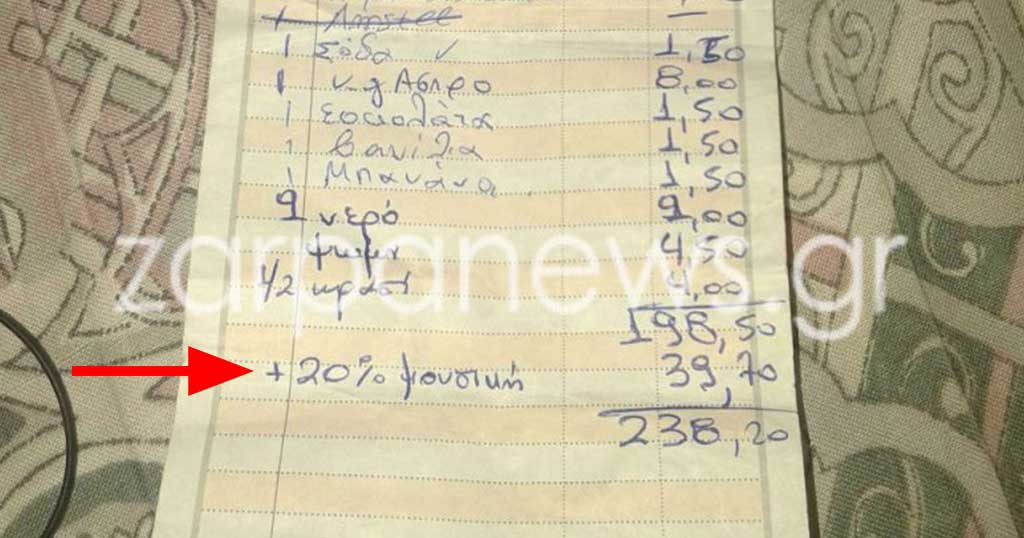 1 Amstel —
1 Σόδα ✓ 1,50
1 ν.g Άσπρο 8,00
1 σοκολάτα 1,50
1 βανίλια 1,50
1 Μπανάνα 1,50
9 νερό 9,00
ψωμί 4,50
1/2 κρασί 4,00
zarpanews.gr
198,50
+ 20% μουσική 39,70
238,20